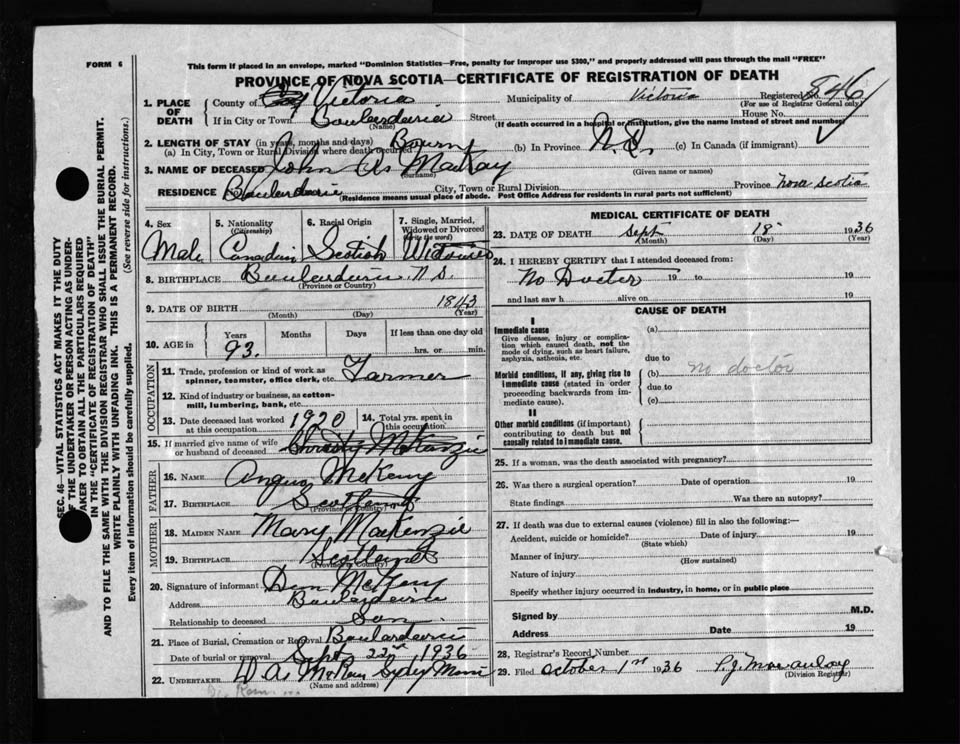 FORM 6
This form if placed in an envelope, marked "Dominion Statistics—Free, penalty for improper use $300," and properly addressed will pass through the mail "FREE"
PROVINCE OF NOVA SCOTIA—CERTIFICATE OF REGISTRATION OF DEATH
1. PLACE OF DEATH
County of Victoria Municipality of Victoria Registered No. 846
(For use of Registrar General only)
If in City or Town Boulardarie Street House No.
(Name) (If death occurred in a hospital or institution, give the name instead of street and number)
2. LENGTH OF STAY (in years, months and days)
(a) In City, Town or Rural Division where death occurred Bourn (b) In Province N.S. (c) In Canada (if immigrant)
3. NAME OF DECEASED John MacKay
(Surname) (Given name or names)
RESIDENCE Boulardarie City, Town or Rural Division Province Nova Scotia
(Residence means usual place of abode. Post Office Address for residents in rural parts not sufficient)
4. Sex Male
5. Nationality (Citizenship) Canadian
6. Racial Origin Scotish
7. Single, Married, Widowed or Divorced (Write the word) Widowed
8. BIRTHPLACE Boulardarie N.S.
(Province or Country)
9. DATE OF BIRTH 1843
(Month) (Day) (Year)
10. AGE in Years Months Days If less than one day old
93. hrs. or min.
OCCUPATION
11. Trade, profession or kind of work as spinner, teamster, office clerk, etc. Farmer
12. Kind of industry or business, as cotton-mill, lumbering, bank, etc.
13. Date deceased last worked at this occupation 1920
14. Total yrs. spent in this occupation
15. If married give name of wife or husband of deceased Christy McKenzie
FATHER
16. NAME Angus
17. BIRTHPLACE Scotland
(Province or Country)
MOTHER
18. MAIDEN NAME Mary MacKenzie
19. BIRTHPLACE Scotland
(Province or Country)
20. Signature of informant Dan
Address Boulardarie
Relationship to deceased Son
21. Place of Burial, Cremation or Removal Boulardarie
Date of burial or removal Sept 22nd 1936
22. UNDERTAKER W A Sydney Mines
(Name and address)
MEDICAL CERTIFICATE OF DEATH
23. DATE OF DEATH Sept 18 1936
(Month) (Day) (Year)
24. I HEREBY CERTIFY that I attended deceased from:
No Docter 19 to 19
and last saw h alive on 19
CAUSE OF DEATH
I
Immediate cause
Give disease, injury or complication which caused death, not the mode of dying, such as heart failure, asphyxia, asthenia, etc.
(a)
due to
Morbid conditions, if any, giving rise to immediate cause (stated in order proceeding backwards from immediate cause).
(b) no doctor
due to
(c)
II
Other morbid conditions (if important) contributing to death but not causally related to immediate cause.
25. If a woman, was the death associated with pregnancy?
26. Was there a surgical operation? Date of operation 19
State findings Was there an autopsy?
27. If death was due to external causes (violence) fill in also the following:—
Accident, suicide or homicide? Date of injury 19
(State which)
Manner of injury
(How sustained)
Nature of injury
Specify whether injury occurred in industry, in home, or in public place
Signed by M.D.
Address Date 19
28. Registrar's Record Number
29. Filed October 1st 1936 P.J. Macaulay
(Division Registrar)
SEC. 46—VITAL STATISTICS ACT MAKES IT THE DUTY
OF THE UNDERTAKER OR PERSON ACTING AS UNDER-
TAKER "TO OBTAIN ALL THE PARTICULARS REQUIRED
IN THE "CERTIFICATE OF REGISTRATION OF DEATH"
AND TO FILE THE SAME WITH THE DIVISION REGISTRAR WHO SHALL ISSUE THE BURIAL PERMIT.
WRITE PLAINLY WITH UNFADING INK. THIS IS A PERMANENT RECORD.
Every item of information should be carefully supplied. (See reverse side for instructions.)